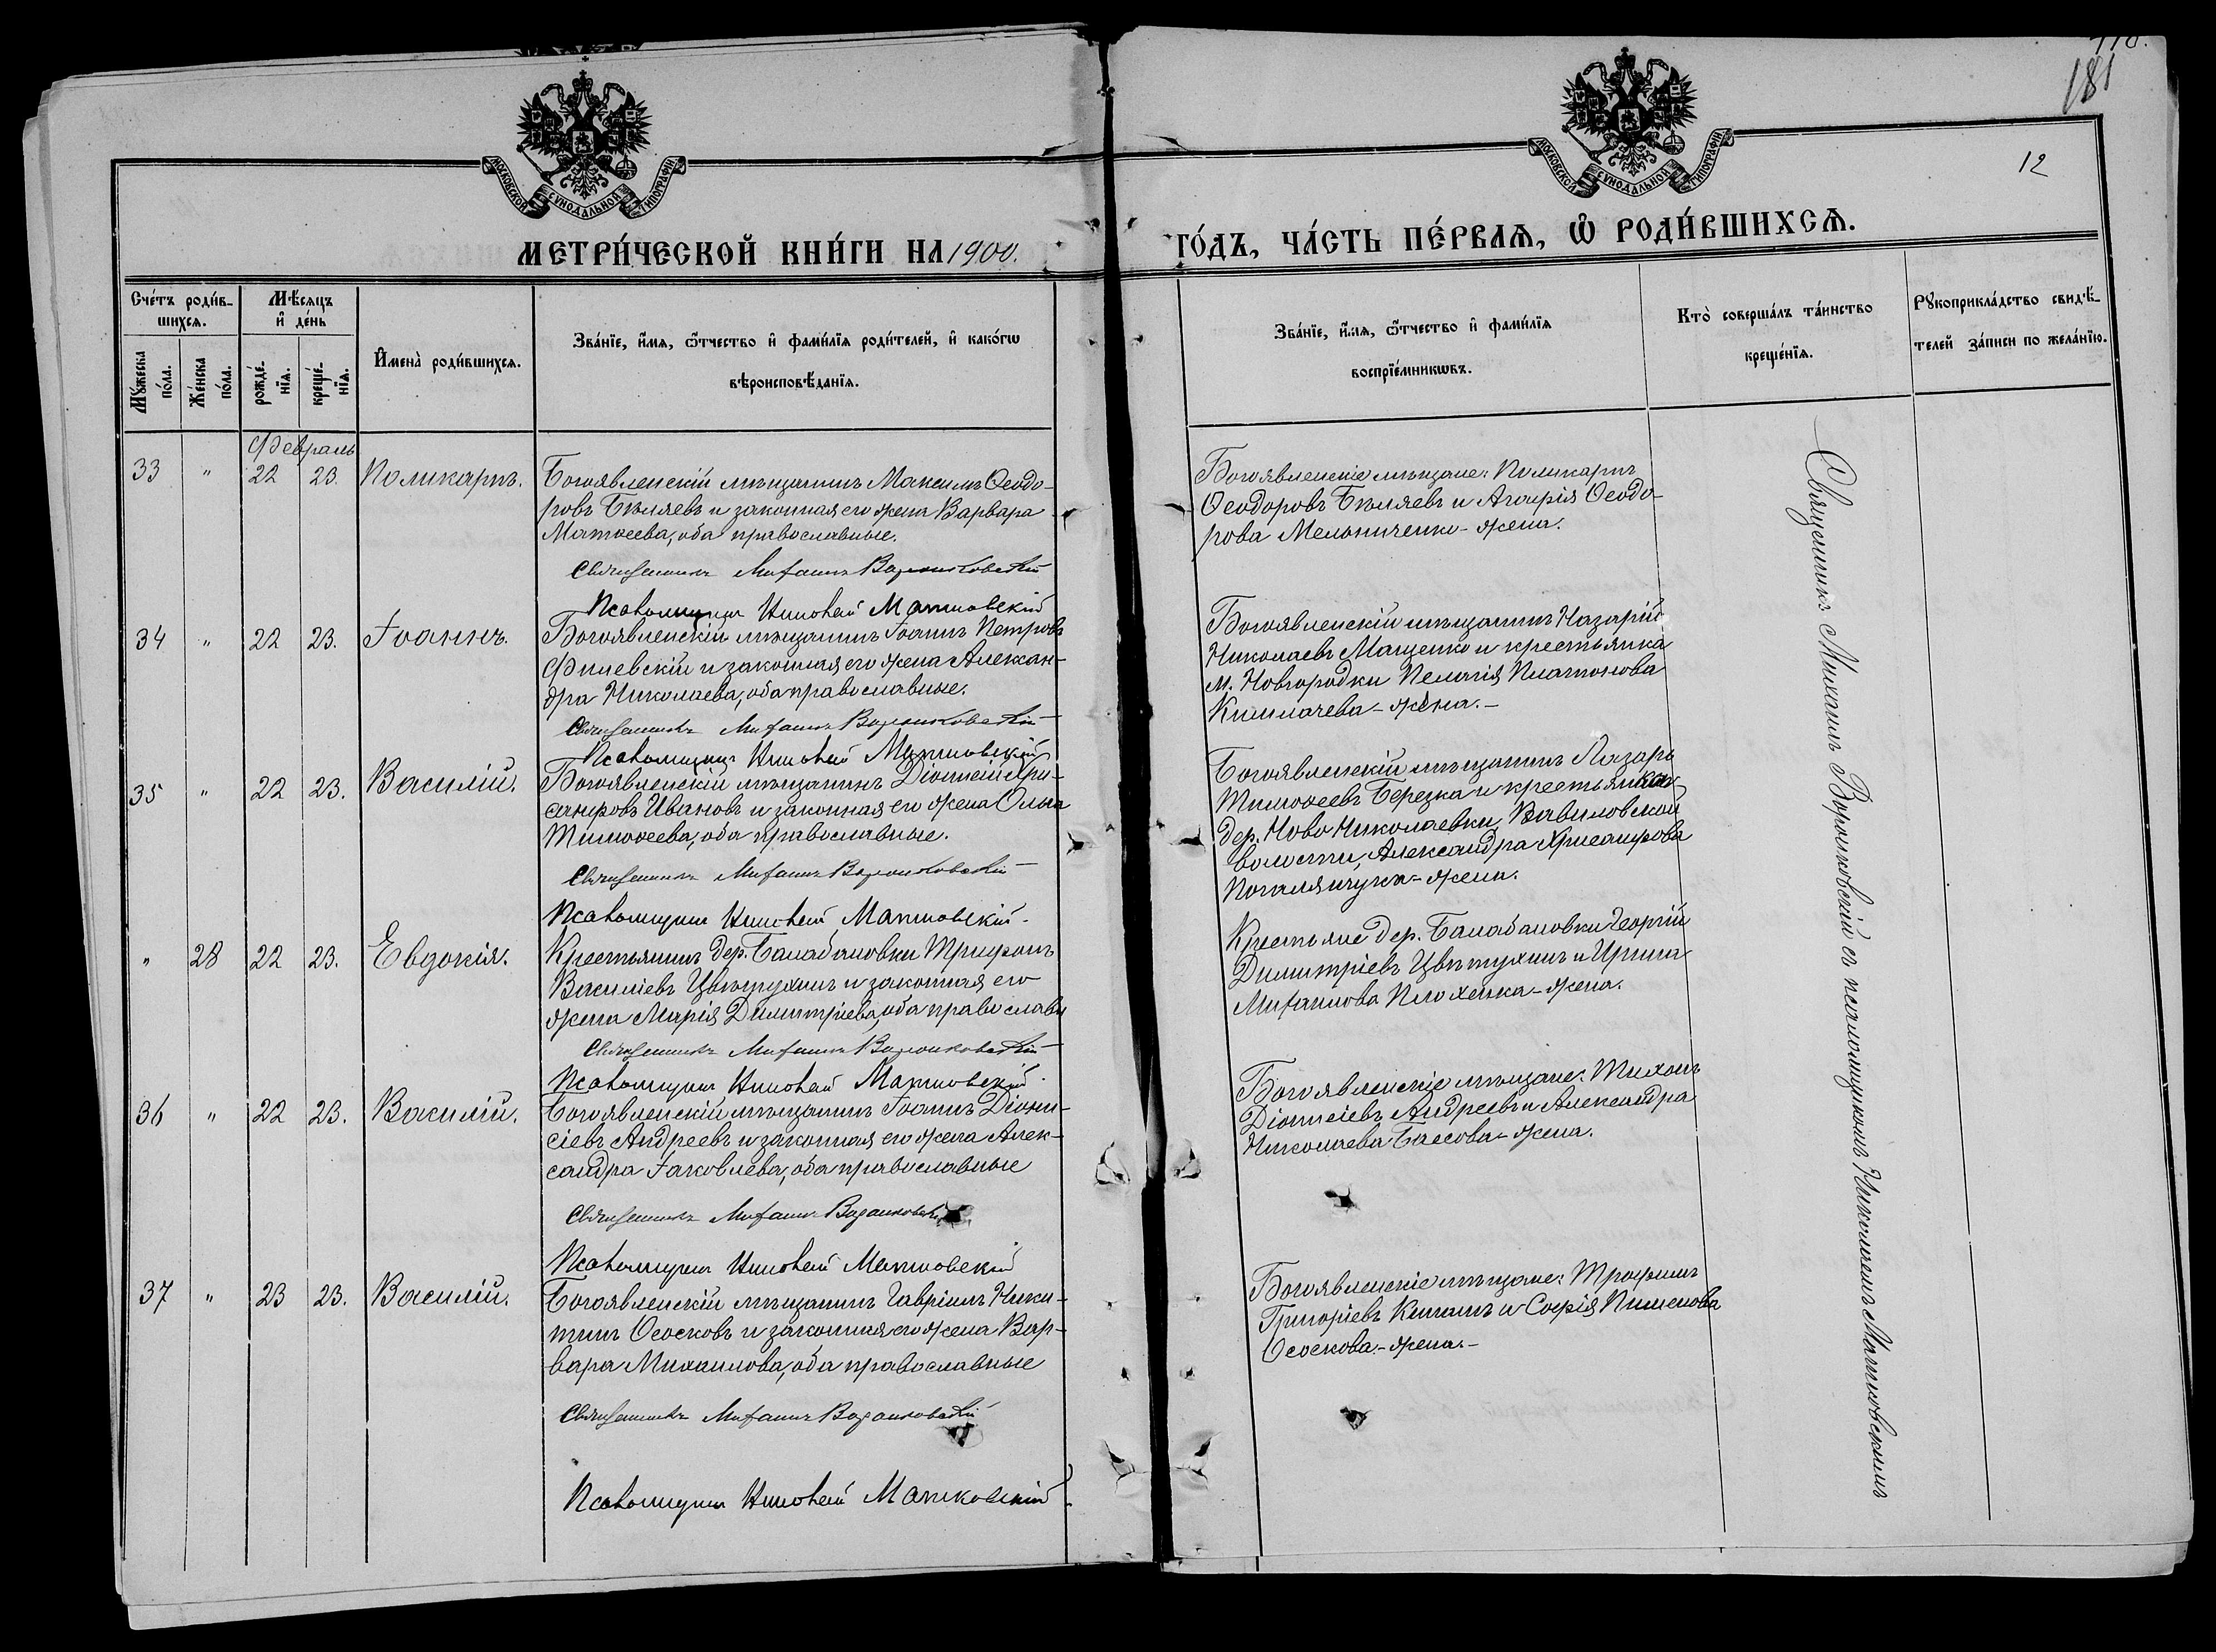 181
12
МОСКОВСКОЙ СѴНОДАЛЬНОЙ ТИПОГРАФІИ
МОСКОВСКОЙ СѴНОДАЛЬНОЙ ТИПОГРАФІИ
МЕТРИ́ЧЕСКОЙ КНИ́ГИ НА 1900.
ГО́ДЪ, ЧА́СТЬ ПЕ́РВАѦ, Ѽ РОДИ́ВШИХСѦ.
Сче́тъ роди́в-
шихсѧ.
Мꙋ́жеска
по́ла.
Же́нска
по́ла.
Мѣ́сѧцъ
и҆ де́нь
рожде́-
нїѧ.
креще́-
нїѧ.
И҆мена̀ роди́вшихсѧ.
Зва́нїе, и҆́мѧ, ѻ҆́тчество и҆ фами́лїѧ роди́телей, и҆ како́гѡ
вѣроисповѣ́данїѧ.
Зва́нїе, и҆́мѧ, ѻ҆́тчество и҆ фами́лїѧ
воспрїе́мникѡвъ.
Кто̀ соверша́лъ та́инство
креще́нїѧ.
Рꙋкоприкла́дство свидѣ́-
телей за́писи по жела́нїю.
Февраль
33 " 22 23. Поликарпъ.
Богоявленскій мѣщанинъ Максимъ Ѳеодо-
ровъ Бѣляевъ и законная его жена Варвара
Матѳеева, оба православные.
Священникъ Михаилъ Воронковскій
Псаломщикъ Николай Матковскій
Богоявленскіе мѣщане: Поликарпъ
Ѳеодоровъ Бѣляевъ и Агафія Ѳеодо-
рова Мельниченко - жена.
34 " 22 23. Іоаннъ.
Богоявленскій мѣщанинъ Іоаннъ Петровъ
Филевскій и законная его жена Алексан-
дра Николаева, оба православные.
Священникъ Михаилъ Воронковскій
Псаломщикъ Николай Матковскій
Богоявленскій мѣщанинъ Назарій
Николаевъ Мащенко и крестьянка
м. Новгородки Пелагія Платонова
жена. -
35 " 22 23. Василій.
Богоявленскій мѣщанинъ Діонисій Хри-
санфовъ Ивановъ и законная его жена Ольга
Тимоѳеева, оба православные.
Священникъ Михаилъ Воронковскій
Псаломщикъ Николай Матковскій.
Богоявленскій мѣщанинъ Лазарь
Тимоѳеевъ Березка и крестьянка
дер. Ново Николаевки, Вавиловской
волости, Александра Хрисанфова
жена.
" 28 22 23. Евдокія.
Крестьянинъ дер. Балабановки Трифонъ
Василіевъ Цвѣтухинъ и законная его
жена Марія Димитріева, оба православн
Священникъ Михаилъ Воронковскій
Псаломщикъ Николай Матковскій.
Крестьяне дер. Балабановки Георгій
Димитріевъ Цвѣтухинъ и Ирина
Михаилова Плохенка - жена.
36 " 22 23. Василій.
Богоявленскій мѣщанинъ Іоаннъ Діони-
сіевъ Андреевъ и законная его жена Алек-
сандра Іаковлева, оба православные
Священникъ Михаилъ Воронковскій
Псаломщикъ Николай Матковскій
Богоявленскіе мѣщане: Тихонъ
Діонисіевъ Андреевъ и Александра
Николаева Баесова - жена.
37 " 23 23. Василій.
Богоявленскій мѣщанинъ Гавріилъ Ники-
тинъ Ососковъ и законная его жена Вар-
вара Михаилова, оба православные
Священникъ Михаилъ Воронковскій
Псаломщикъ Николай Матковскій
Богоявленскіе мѣщане: Трофимъ
Григоріевъ и Софія Пименова
Ососкова. - жена. -
Священникъ Михаилъ Воронковскій съ псаломщикомъ Николаемъ Матковскимъ